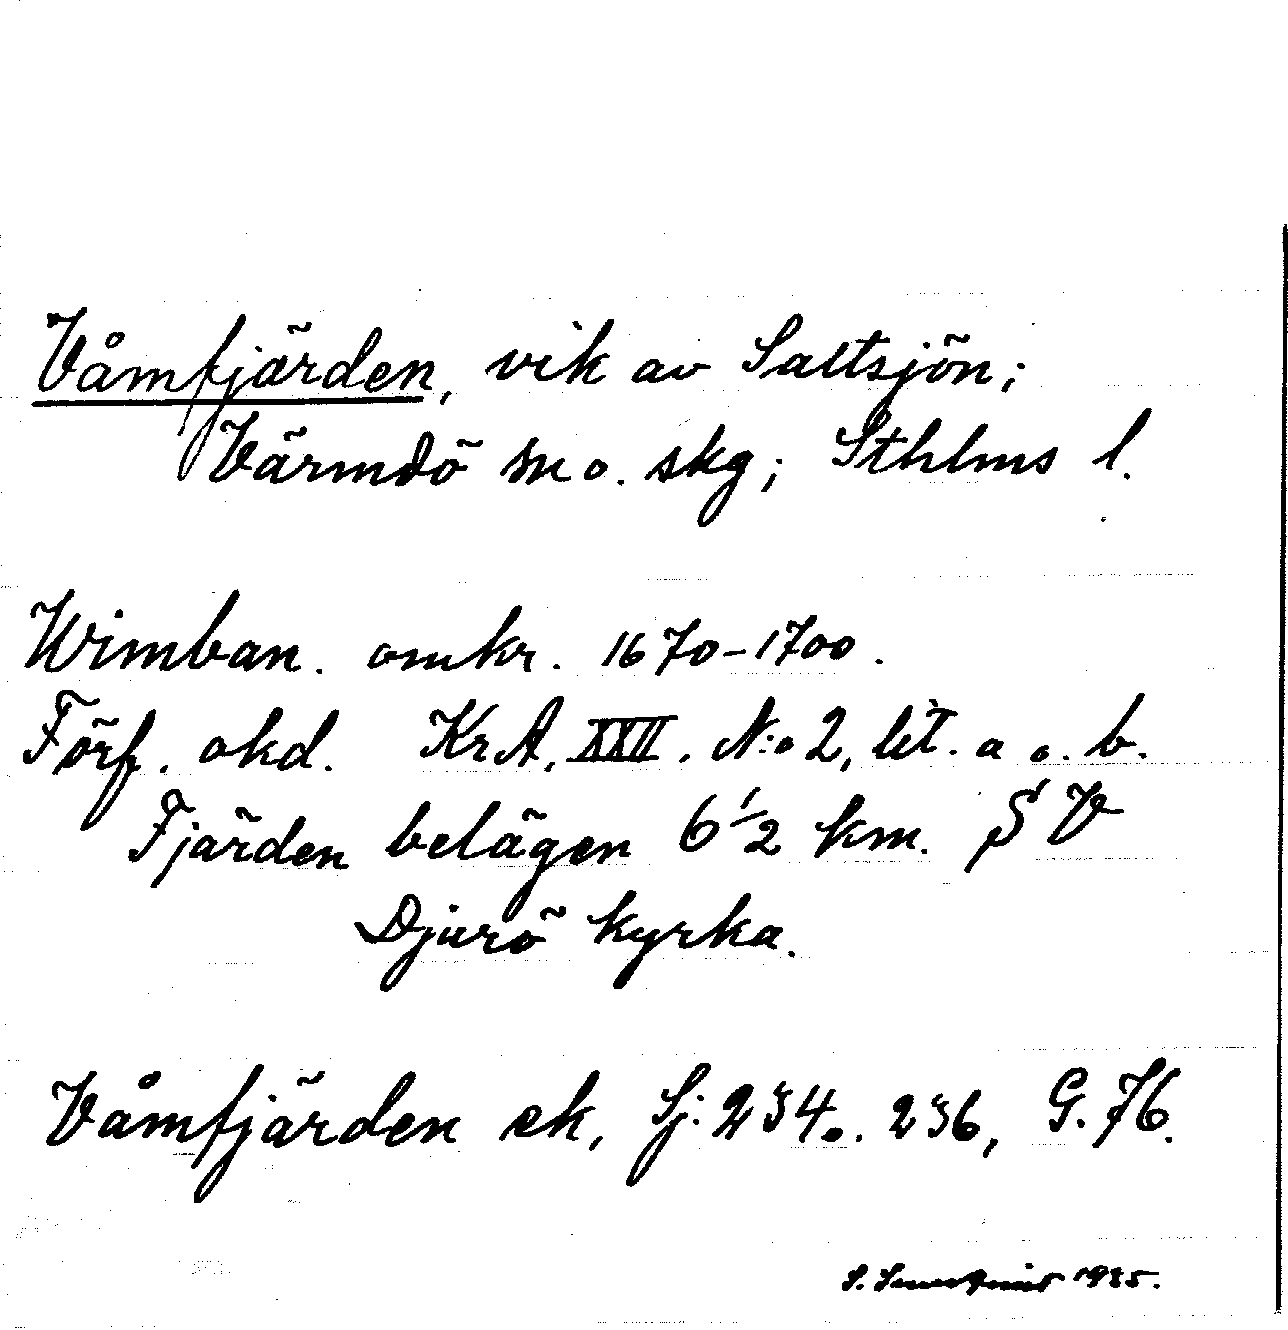 Våmfjärden, vik av Saltsjön;
Värmdö sn o. skg; Sthlms l.
Wimban. omkr. 1670-1700.
Förf. okd. KrA, XXII. N:o 2, lit. a o. b.
Fjärden belägen 6 1/2 km. S V
Djurö kyrka.
Våmfjärden ek, Sj: 234 o. 236, G. 76.
S. 1935.